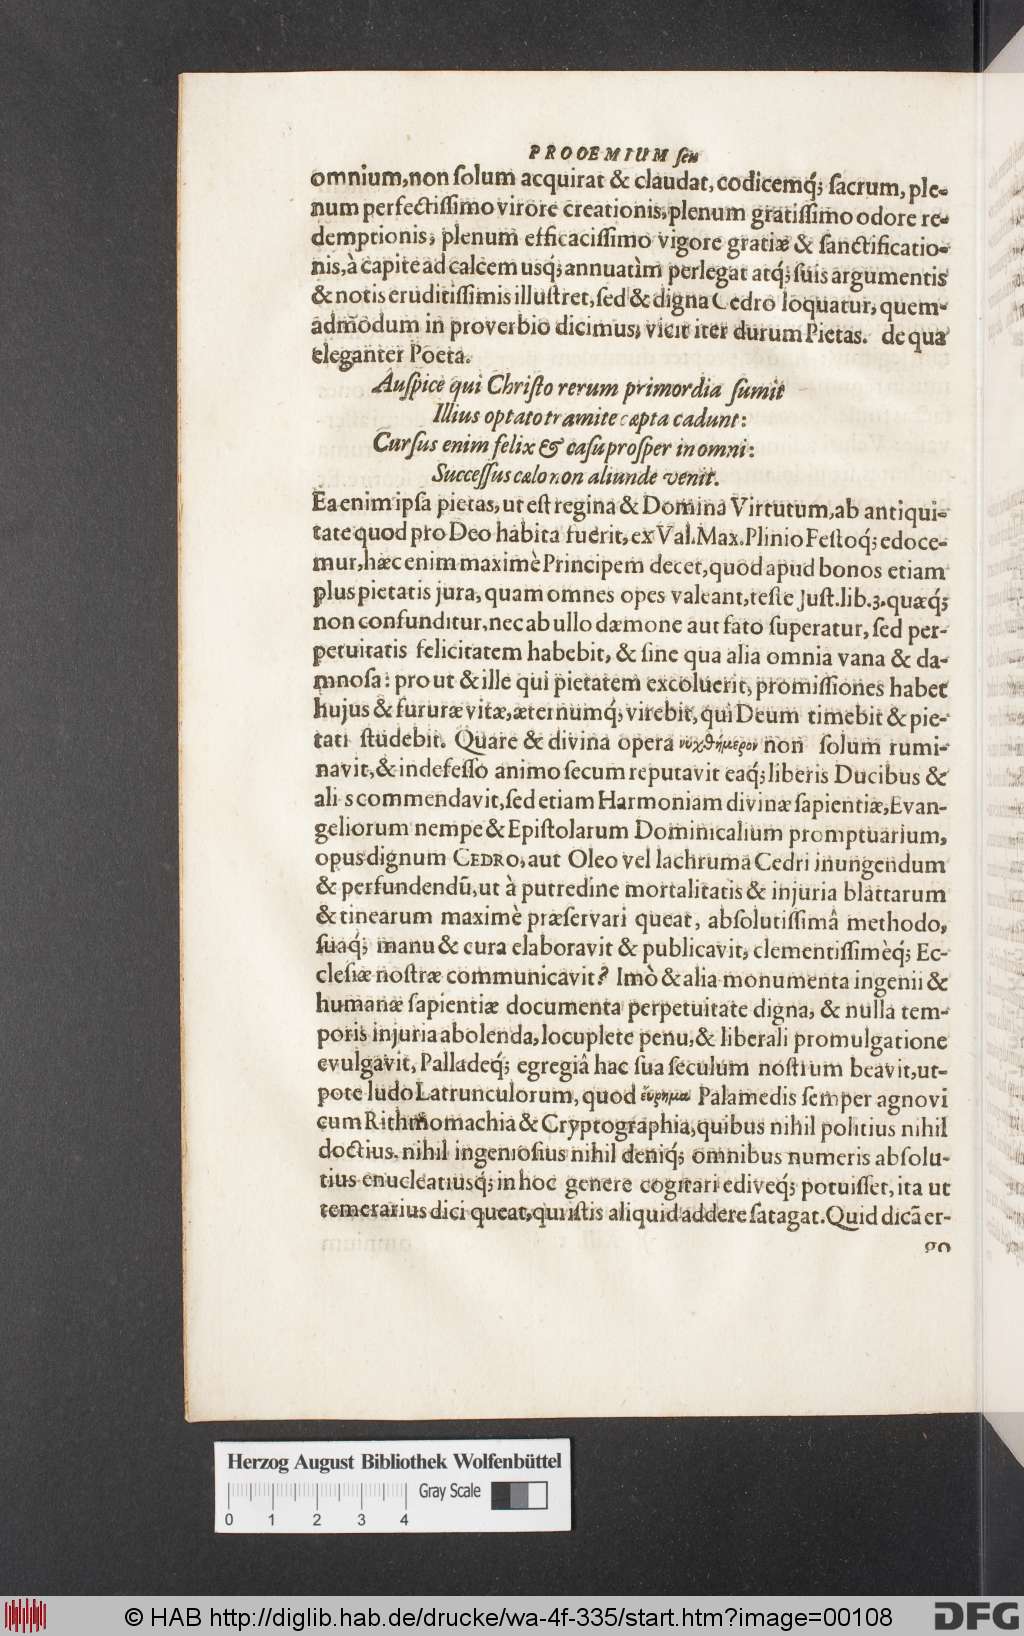 PROOEMIUM ſeu
omnium, non ſolum acquirat & claudat, codicemq́; ſacrum, ple-
num perfectiſſimo virore creationis, plenum gratiſſimo odore re-
demptionis, plenum efficaciſſimo vigore gratiæ & ſanctificatio-
nis, à capite ad calcem usq́; annuatìm perlegat atq́; ſuis argumentis
& notis eruditiſſimis illuſtret, ſed & digna Cedro loquatur, quem-
admõdum in proverbio dicimus, vicit iter durum Pietas. de qua
eleganter Poeta.
Auſpice qui Chriſto rerum primordia ſumit
Illius optato tramite cæpta cadunt:
Curſus enim felix & caſu proſper in omni:
Succeſſus cælo non aliunde venit.
Ea enim ipſa pietas, ut eſt regina & Domina Virtutum, ab antiqui-
tate quod pro Deo habita fuerit, ex Val. Max. Plinio Feſtoq́; edoce-
mur, hæc enim maximè Principem decet, quod apud bonos etiam
plus pietatis jura, quam omnes opes valeant, teſte Juſt. lib. 3. quæq́;
non confunditur, nec ab ullo dæmone aut fato ſuperatur, ſed per-
petuitatis felicitatem habebit, & ſine qua alia omnia vana & da-
mnoſa: prout & ille qui pietatem excoluerit, promiſſiones habet
hujus & futuræ vitæ, æternumq́; virebit, qui Deum timebit & pie-
tati ſtudebit. Quare & divina opera νυχθήμερον non ſolum rumi-
navit, & indefeſſo animo ſecum reputavit eaq́; liberis Ducibus &
ali s commendavit, ſed etiam Harmoniam divinæ ſapientiæ, Evan-
geliorum nempe & Epiſtolarum Dominicalium promptuarium,
opus dignum CEDRO, aut Oleo vel lachruma Cedri inungendum
& perfundendũ, ut à putredine mortalitatis & injuria blattarum
& tinearum maximè præſervari queat, abſolutiſſimâ methodo,
ſuaq́; manu & cura elaboravit & publicavit, clementiſſimèq́; Ec-
cleſiæ noſtræ communicavit? Imò & alia monumenta ingenii &
humanæ ſapientiæ documenta perpetuitate digna, & nulla tem-
poris injuria abolenda, locuplete penu, & liberali promulgatione
evulgavit, Palladeq́; egregiâ hac ſua ſeculum noſtrum beavit, ut-
pote ludo Latrunculorum, quod εὕρημα Palamedis ſemper agnovi
cum Rithmomachia & Cryptographia, quibus nihil politius nihil
doctius, nihil ingenioſius nihil deniq́; omnibus numeris abſolu-
tius enucleatiusq́; in hoc genere cogitari ediveq́; potuiſſet, ita ut
temerarius dici queat, qui iſtis aliquid addere ſatagat. Quid dicã er-
go
Herzog August Bibliothek Wolfenbüttel
Gray Scale
0 1 2 3 4
© HAB http://diglib.hab.de/drucke/wa-4f-335/start.htm?image=00108
DFG